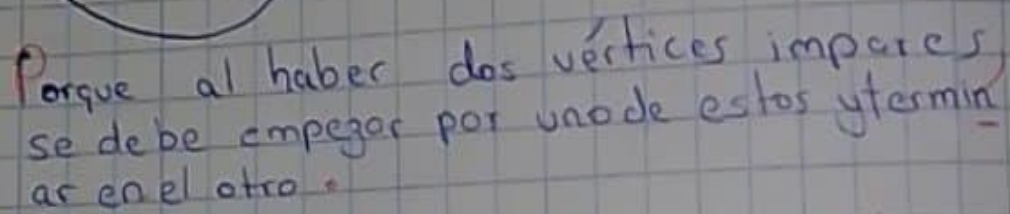 Porque al haber dos vértices impares,
se debe empezar por uno de estos y termin
ar en el otro.